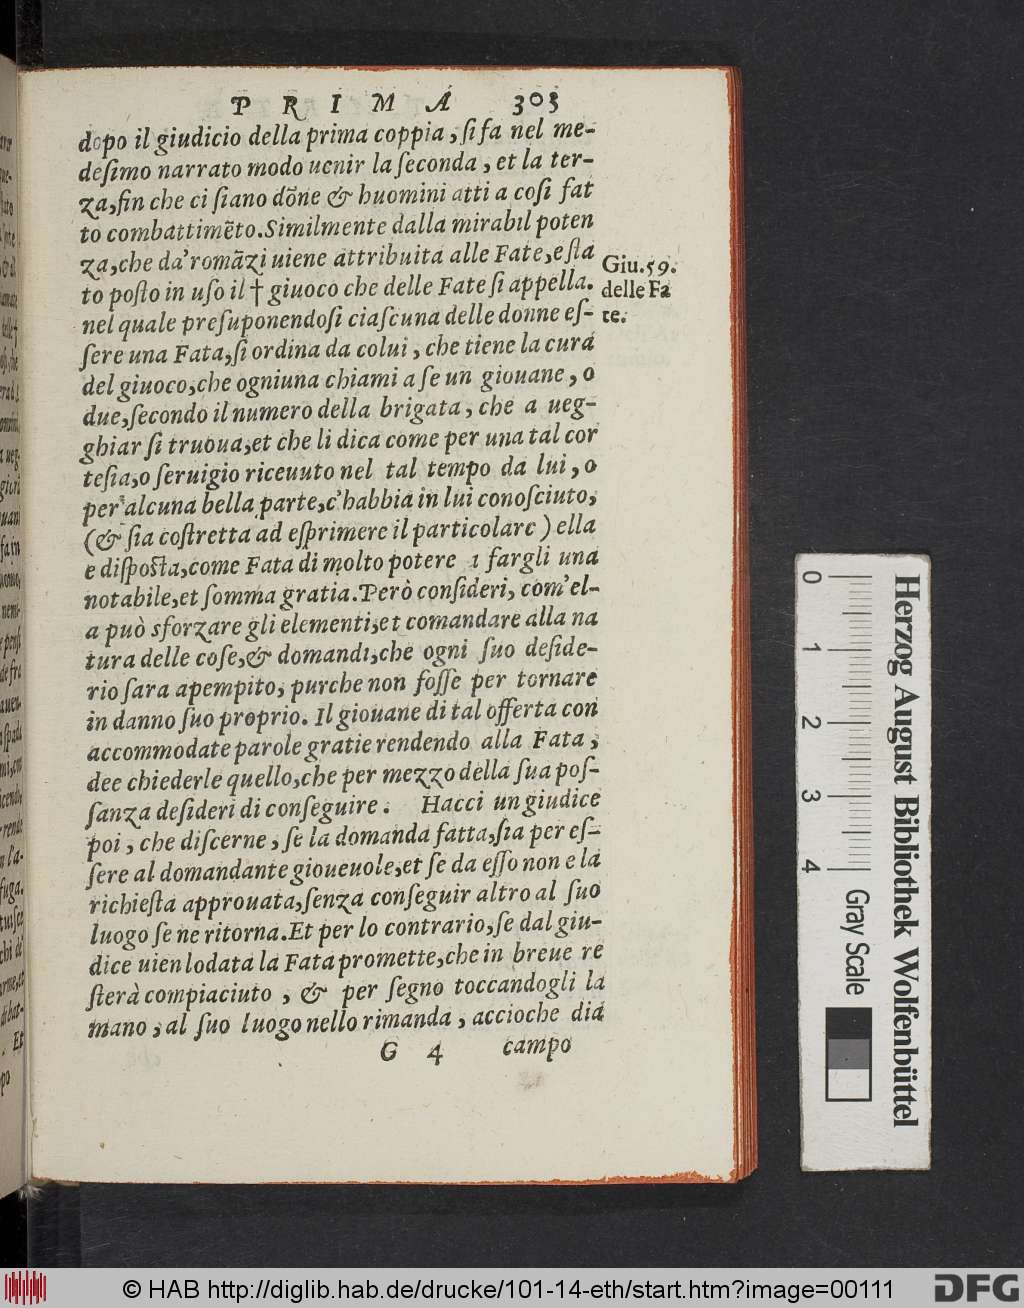 P R I M A 303
dopo il giudicio della prima coppia, ſi fa nel me-
deſimo narrato modo uenir la ſeconda, et la ter-
za, fin che ci ſiano dõne & huomini atti a coſi fat
to combattimẽto. Similmente dalla mirabil poten
za, che da'romãzi uiene attribuita alle Fate, e ſta
to poſto in uſo il † giuoco che delle Fate ſi appella.
nel quale preſuponendoſi ciaſcuna delle donne eſ-
ſere una Fata, ſi ordina da colui, che tiene la cura
del giuoco, che ogniuna chiami a ſe un giouane, o
due, ſecondo il numero della brigata, che a ueg-
ghiar ſi truoua, et che li dica come per una tal cor
teſia, o ſeruigio riceuuto nel tal tempo da lui, o
per alcuna bella parte, c'habbia in lui conoſciuto,
(& ſia coſtretta ad eſprimere il particolare) ella
e diſpoſta, come Fata di molto potere i fargli una
notabile, et ſomma gratia. Però conſideri, com'el-
a può sforzare gli elementi, et comandare alla na
tura delle coſe, & domandi, che ogni ſuo deſide-
rio ſara apempito, purche non foſſe per tornare
in danno ſuo proprio. Il giouane di tal offerta con
accommodate parole gratie rendendo alla Fata,
dee chiederle quello, che per mezzo della ſua poſ-
ſanza deſideri di conſeguire. Hacci un giudice
poi, che diſcerne, ſe la domanda fatta, ſia per eſ-
ſere al domandante gioueuole, et ſe da eſſo non e la
richieſta approuata, ſenza conſeguir altro al ſuo
luogo ſe ne ritorna. Et per lo contrario, ſe dal giu-
dice uien lodata la Fata promette, che in breue re
ſterà compiaciuto, & per ſegno toccandogli la
mano, al ſuo luogo nello rimanda, accioche dia
G 4 campo
Giu. 59.
delle Fa
te.
0 1 2 3 4
Gray Scale
Herzog August Bibliothek Wolfenbüttel
© HAB http://diglib.hab.de/drucke/101-14-eth/start.htm?image=00111
DFG